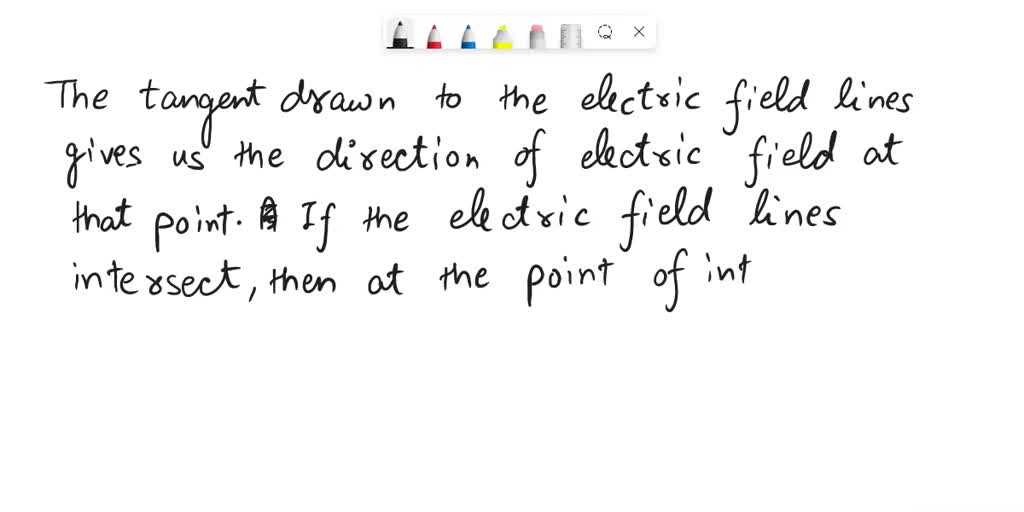 The tangent drawn to the electric field lines
gives us the direction of electric field at
that point. If the electric field lines
intersect, then at the point of int